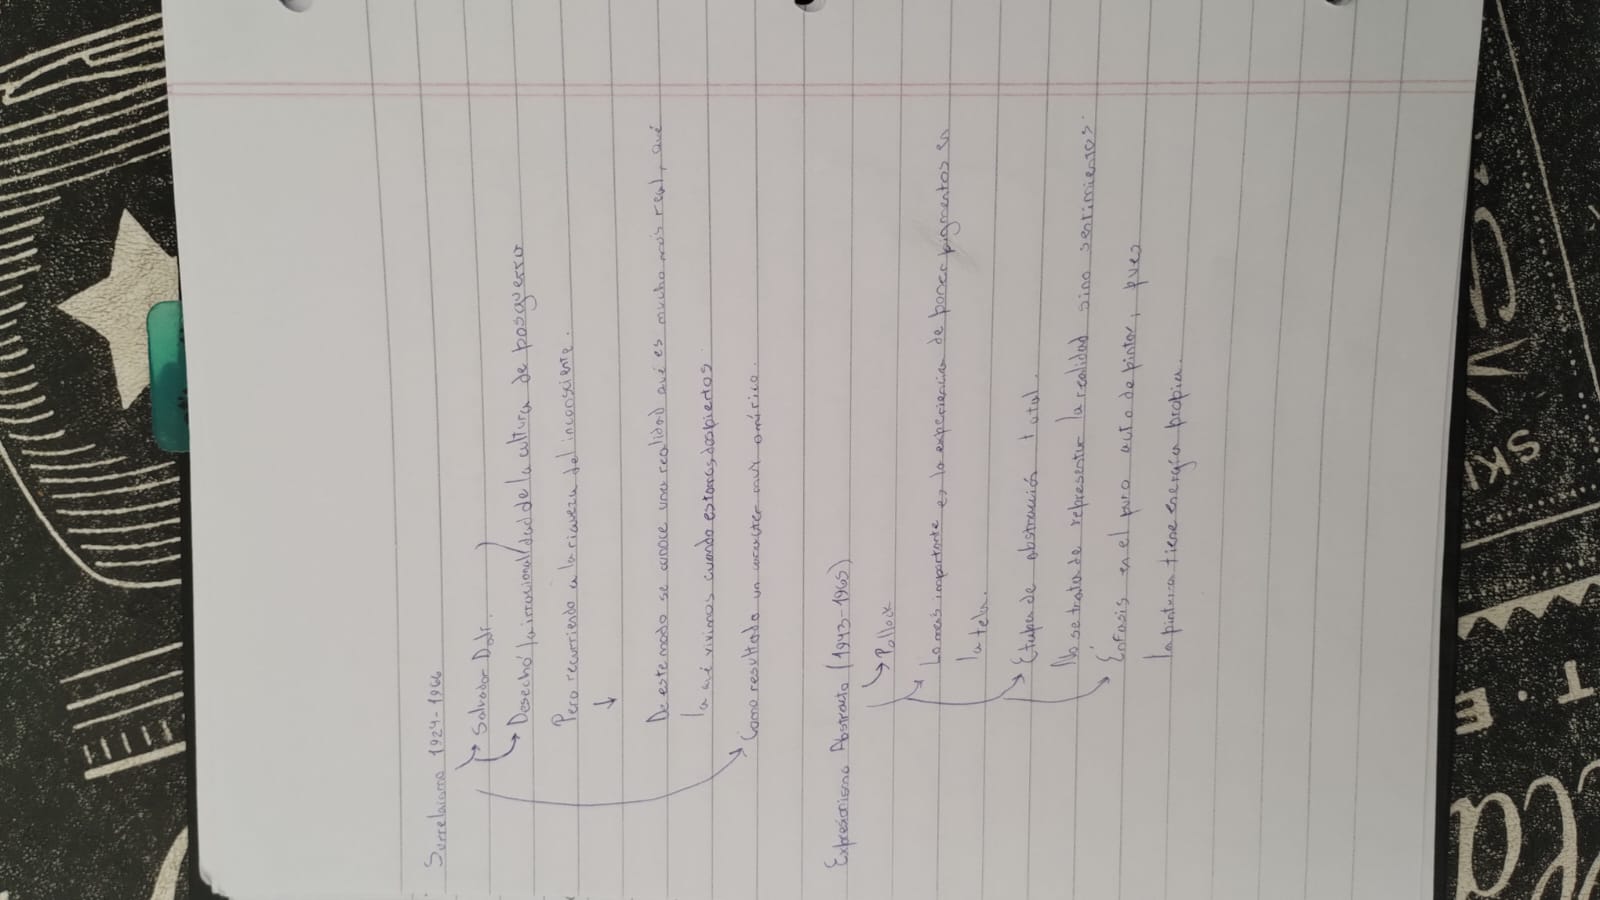 Surrelaismo 1924-1966
Salvador Dalí.
Desechó la irracionalidad de la cultura de posguerra
Pero recurriendo a la riqueza del inconsciente.
De este modo se conoce una realidad qué es mucho más real, qué
la qué vivimos cuando estamos despiertos
Como resultado un caracter muy omírico.
Expresionismo Abstracto (1943-1965)
Pollock
Lo más importante es la experiencia de poner pigmentos en
la tela.
Etapa de abstracción total.
No se trata de representar la realidad sino sentimientos.
Énfasis en el puro acto de pintar, pues
la pintura tiene energía propia.
T.E
SK